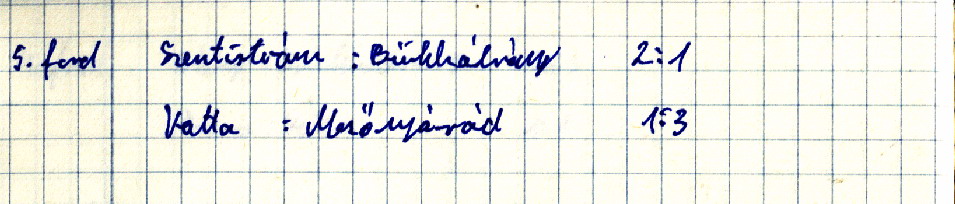 5. ford Szentistván : Bükkábrány 2:1
Vatta : Mezőnyárád 1:3